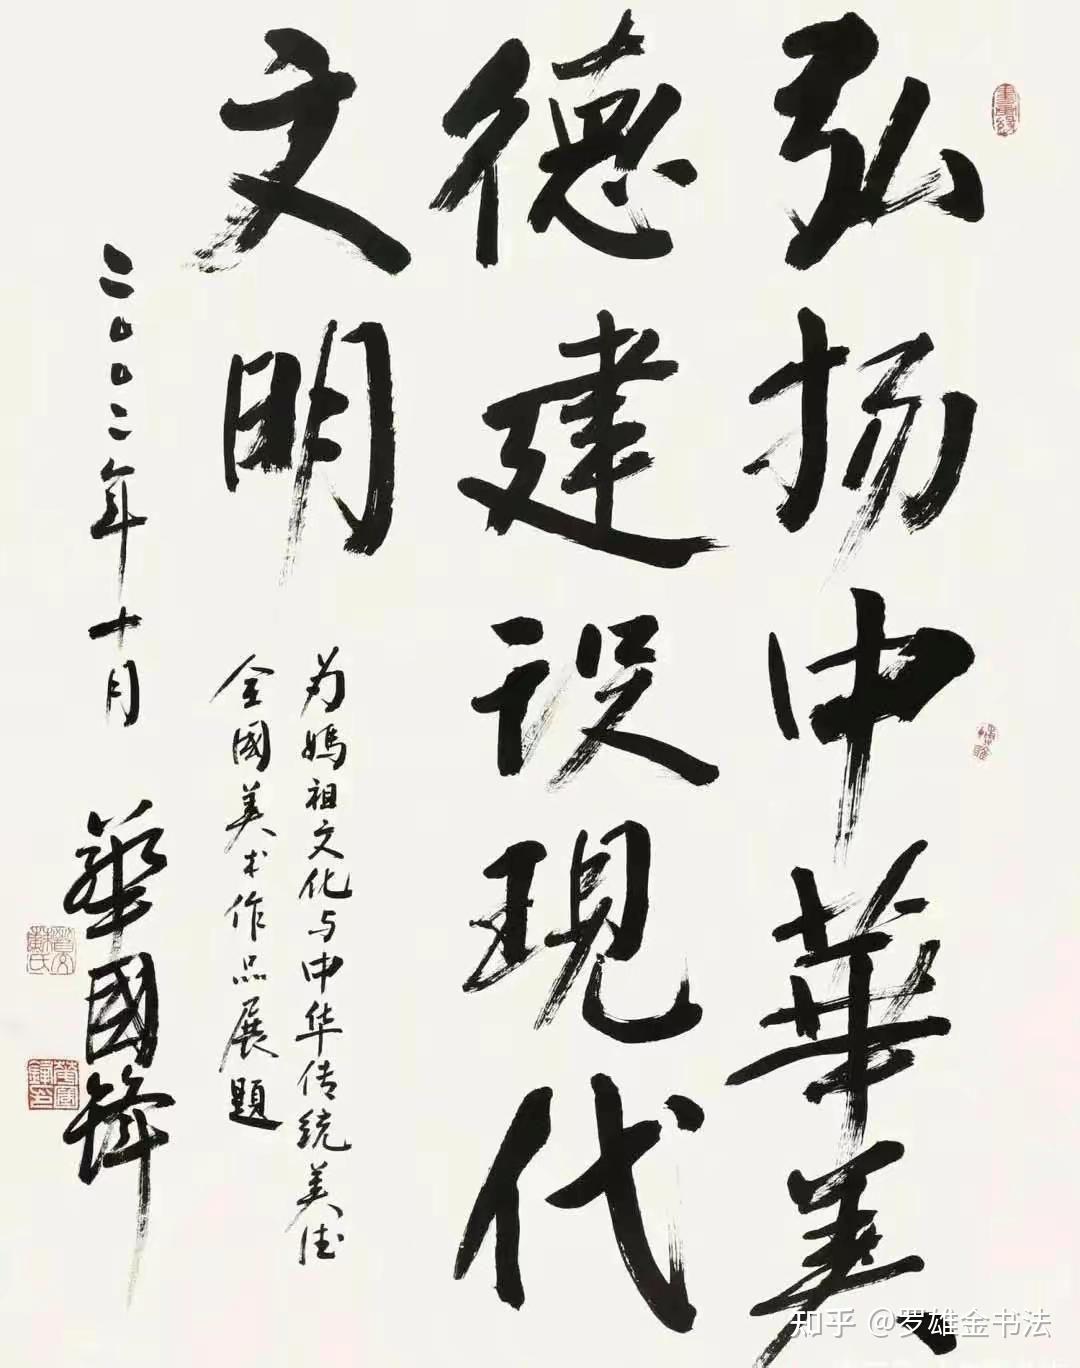 弘扬中華美
德建设現代
文明
为媽祖文化与中华传统美德
全國美术作品展題
二00二年十月
華國鋒
知乎 @罗雄金书法